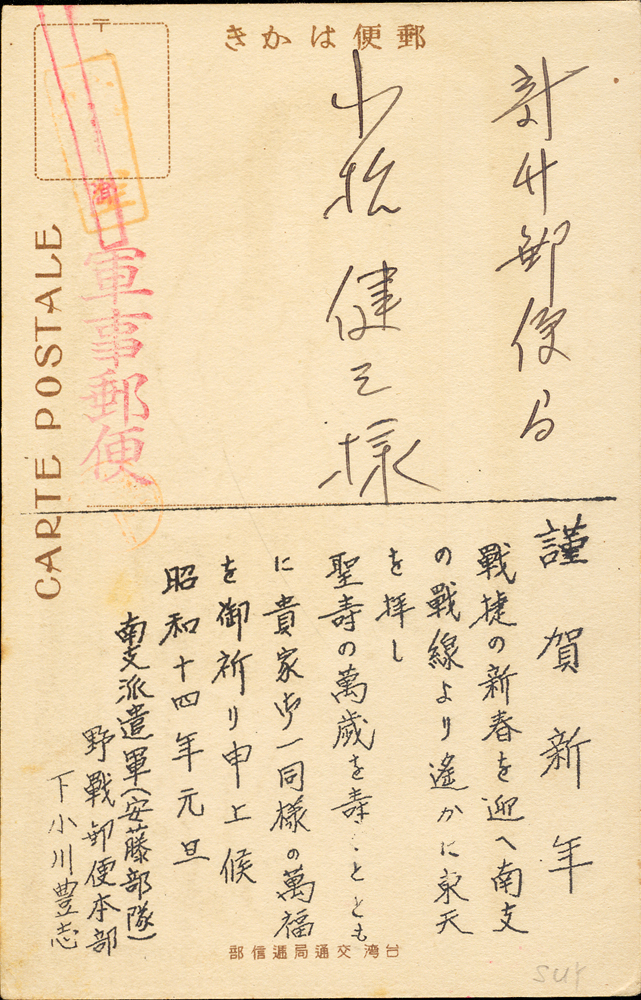 郵便はかき
〒
軍事郵便
CARTE POSTALE
郵便局
小松健三様
謹賀新年
戰捷の新春を迎へ南支
の戰線より遙かに東天
を拝し
聖壽の萬歳を壽ことゝも
に貴家御一同様の萬福
を御祈り申上候
昭和十四年元旦
南支派遣軍(安藤部隊)
野戰郵便本部
下小川豊志
台湾交通局逓信部
SUY